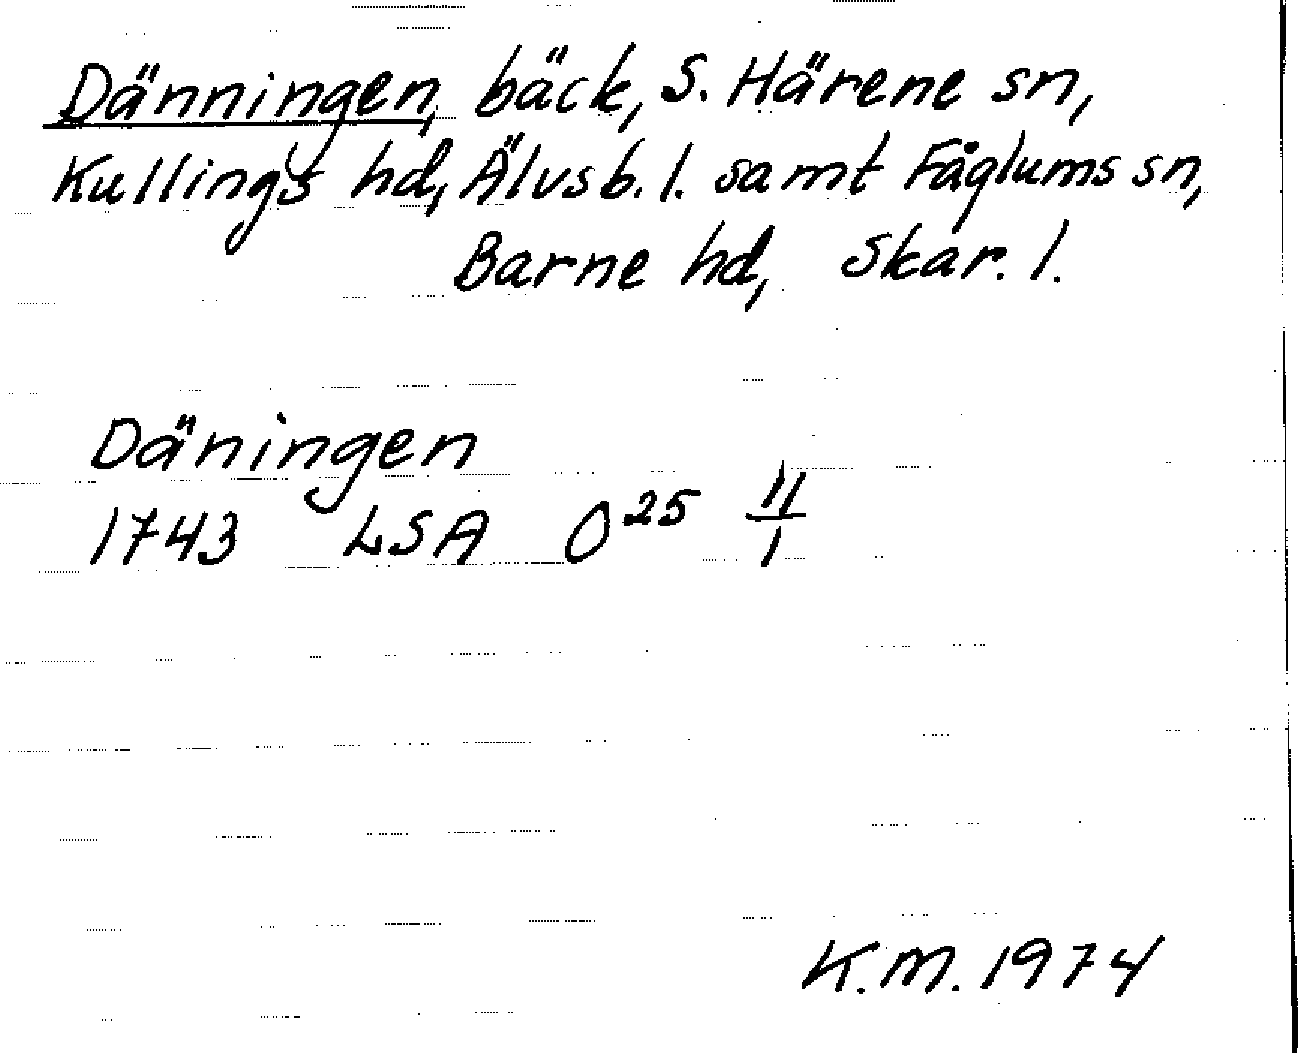 Dänningen, bäck, S. Härene sn,
Kullings hd, Älvsb. l. samt Fåglums sn,
Barne hd, Skar. l.
Däningen
1743 LSA O²⁵ 11/1
K.M. 1974